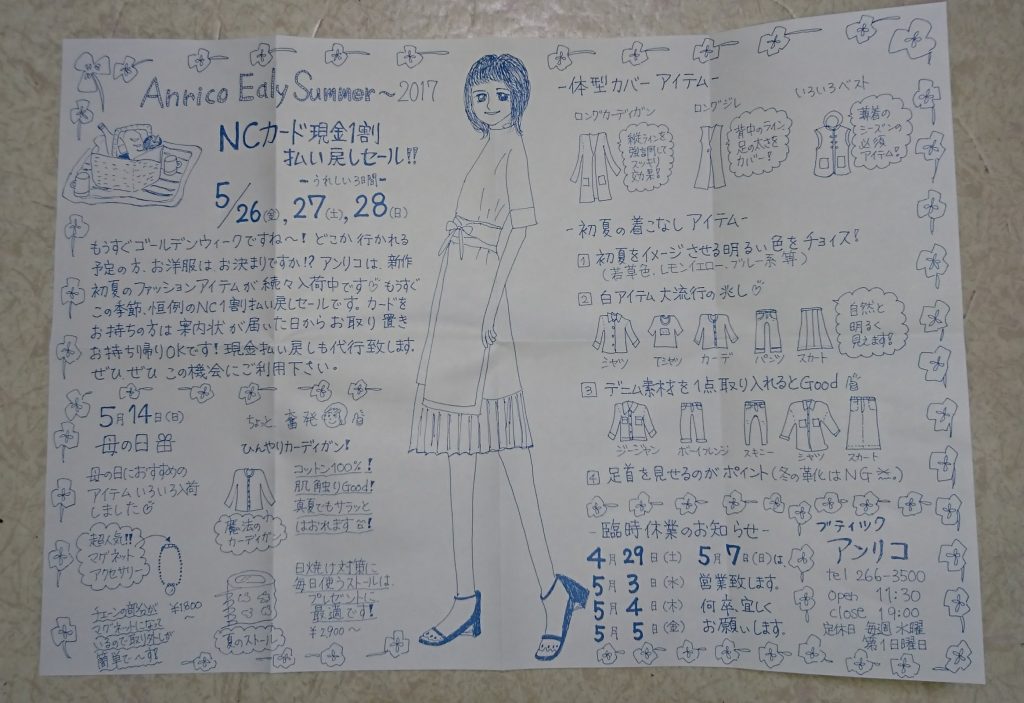 Anrico Ealy Summer～2017
NCカード現金1割
払い戻しセール!!
ーうれしい3日間ー
5/26(金),27(土),28(日)
もうすぐゴールデンウィークですね～! どこか行かれる
予定の方、お洋服はお決まりですか!? アンリコは、新作
初夏のファッションアイテムが続々入荷中です もうすぐ
この季節、恒例のNC1割払い戻しセールです。カードを
お持ちの方は案内状が届いた日からお取り置き
お持ち帰りOKです! 現金払い戻しも代行致します。
ぜひ、ぜひ この機会にご利用下さい。
5月14日(日)
母の日
母の日におすすめの
アイテムいろいろ入荷
しました
超人気!!
マグネット
アクセサリー
チェーンの部分が
マグネットになって
いるので取り外しが
簡単で～す!
¥1800～
ちょっと 奮発
ひんやりカーディガン!
コットン100%!
肌触りGood!
真夏でもサラッと
はおれます
魔法の
カーディガン
日焼け対策に
毎日使うストールは、
プレゼントに
最適です!
¥2900～
夏のストール
ー体型カバーアイテムー
ロングカーディガン
縦ラインを
強調して
スッキリ
効果!
ロングジレ
背中のライン
足の太さを
カバー!
いろいろベスト
薄着の
シーズンの
必須
アイテム!
ー初夏の着こなしアイテムー
1 初夏をイメージさせる明るい色をチョイス!
(若草色、レモンイエロー、ブルー系 等)
2 白アイテム大流行の兆し
シャツ Tシャツ カーデ パンツ スカート
自然と
明るく
見えます!
3 デニム素材を1点取り入れるとGood
ジージャン ボーイフレンド スキニー シャツ スカート
4 足首を見せるのがポイント(冬の革靴はNG。)
ー臨時休業のお知らせー
4月29日(土)
5月3日(水)
5月4日(木)
5月5日(金)
5月7日(日)は、
営業致します。
何卒、宜しく
お願いします。
ブティック
アンリコ
tel 266-3500
open 11:30
close 19:00
定休日 毎週水曜
第1日曜日